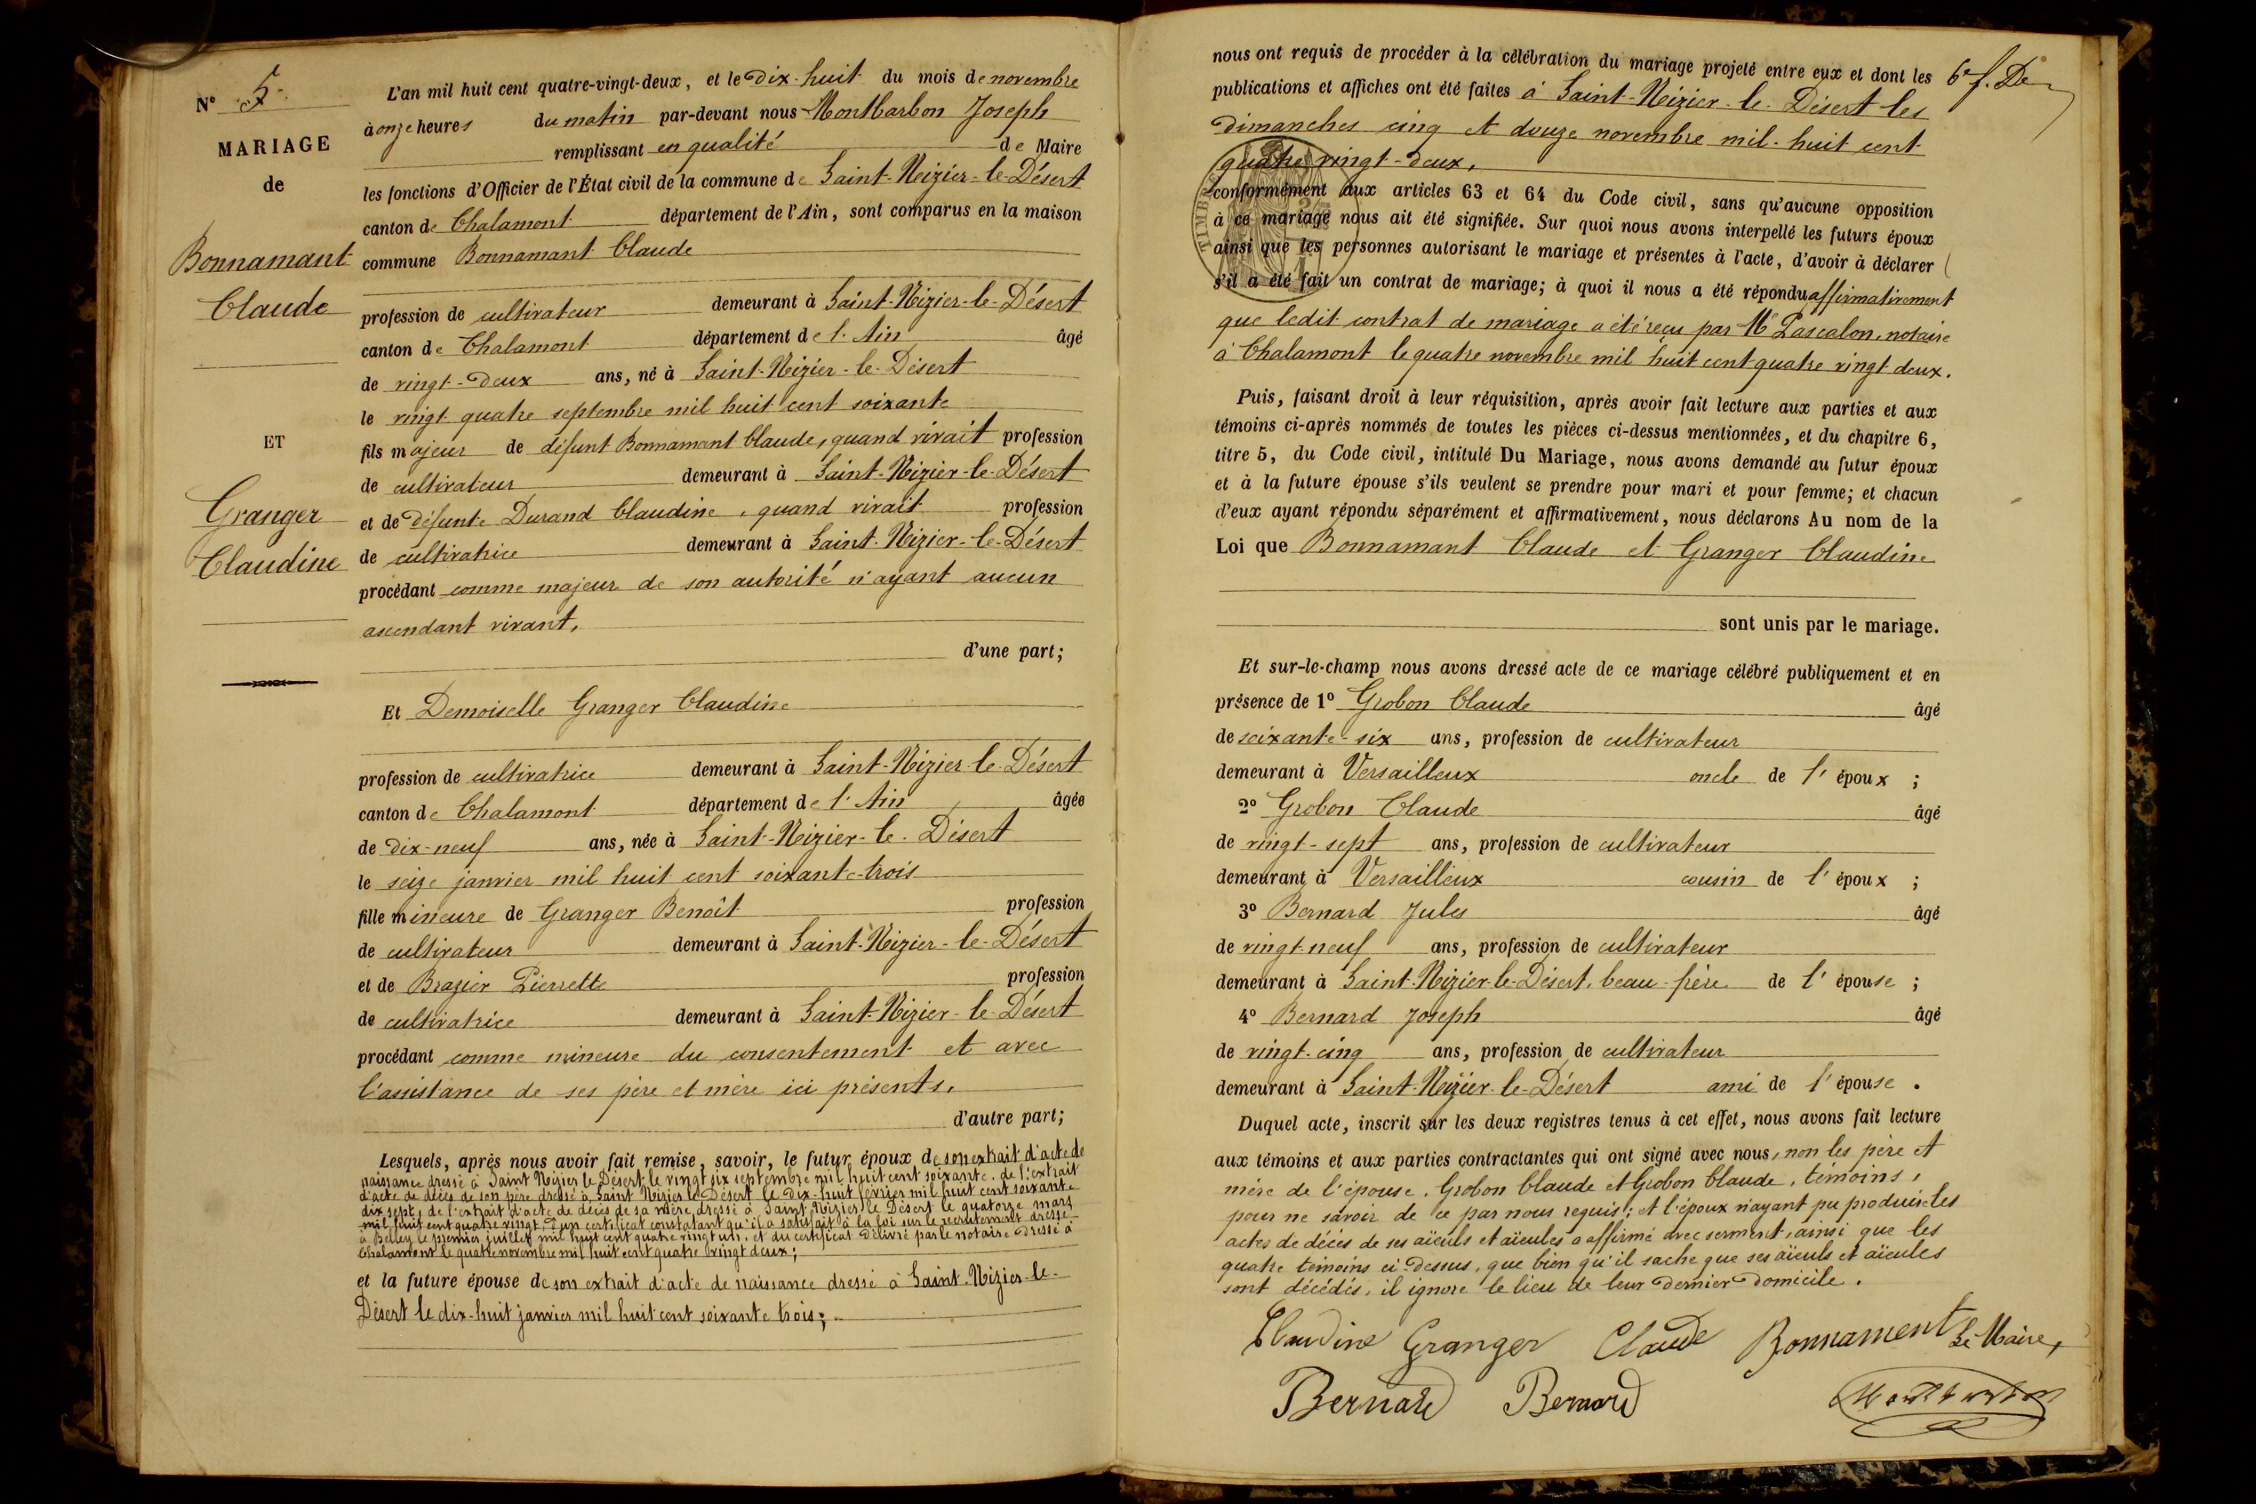 N° 5
MARIAGE
de
Bonnamant
Claude
ET
Granger
Claudine
L'an mil huit cent quatre-vingt-deux, et le dix-huit du mois de novembre
à onze heures du matin par-devant nous Montbarbon Joseph
remplissant en qualité de Maire
les fonctions d'Officier de l'État civil de la commune de Saint-Nizier-le-Désert
canton de Chalamont département de l'Ain, sont comparus en la maison
commune Bonnamant Claude
profession de cultivateur demeurant à Saint-Nizier-le-Désert
canton de Chalamont département de l'Ain âgé
de vingt-deux ans, né à Saint-Nizier-le-Désert
le vingt quatre septembre mil huit cent soixante
fils majeur de défunt Bonnamant Claude, quand vivait profession
de cultivateur demeurant à Saint-Nizier-le-Désert
et de défunte Durand Claudine, quand vivait profession
de cultivatrice demeurant à Saint-Nizier-le-Désert
procédant comme majeur de son autorité n'ayant aucun
ascendant vivant,
d'une part;
Et Demoiselle Granger Claudine
profession de cultivatrice demeurant à Saint-Nizier-le-Désert
canton de Chalamont département de l'Ain âgée
de dix-neuf ans, née à Saint-Nizier-le-Désert
le seize janvier mil huit cent soixante-trois
fille mineure de Granger Benoît profession
de cultivateur demeurant à Saint-Nizier-le-Désert
et de Brazier Pierrette profession
de cultivatrice demeurant à Saint-Nizier-le-Désert
procédant comme mineure du consentement et avec
l'assistance de ses père et mère ici présents,
d'autre part;
Lesquels, après nous avoir fait remise, savoir, le futur époux de son extrait d'acte de
naissance dressé à Saint Nizier le Désert le vingt six septembre mil huit cent soixante, de l'extrait
d'acte de décès de son père dressé à Saint Nizier le Désert le dix-huit février mil huit cent soixante
dix sept, de l'extrait d'acte de décès de sa mère dressé à Saint Nizier le Désert le quatorze mars
mil huit cent quatre vingt, d'un certificat constatant qu'il a satisfait à la loi sur le recrutement dressé
à Belley le premier juillet mil huit cent quatre vingt un, et du certificat délivré par le notaire dressé à
Chalamont le quatre novembre mil huit cent quatre vingt deux;
et la future épouse de son extrait d'acte de naissance dressé à Saint-Nizier-le-
Désert le dix-huit janvier mil huit cent soixante trois;
nous ont requis de procéder à la célébration du mariage projeté entre eux et dont les
publications et affiches ont été faites à Saint-Nizier-le-Désert les
dimanches cinq et douze novembre mil-huit cent
quatre vingt-deux,
conformément aux articles 63 et 64 du Code civil, sans qu'aucune opposition
à ce mariage nous ait été signifiée. Sur quoi nous avons interpellé les futurs époux
ainsi que les personnes autorisant le mariage et présentes à l'acte, d'avoir à déclarer
s'il a été fait un contrat de mariage; à quoi il nous a été répondu affirmativement
que ledit contrat de mariage a été reçu par Me Pascalon, notaire
à Chalamont le quatre novembre mil huit cent quatre vingt deux.
Puis, faisant droit à leur réquisition, après avoir fait lecture aux parties et aux
témoins ci-après nommés de toutes les pièces ci-dessus mentionnées, et du chapitre 6,
titre 5, du Code civil, intitulé Du Mariage, nous avons demandé au futur époux
et à la future épouse s'ils veulent se prendre pour mari et pour femme; et chacun
d'eux ayant répondu séparément et affirmativement, nous déclarons Au nom de la
Loi que Bonnamant Claude et Granger Claudine
sont unis par le mariage.
Et sur-le-champ nous avons dressé acte de ce mariage célébré publiquement et en
présence de 1° Grobon Claude âgé
de soixante-six ans, profession de cultivateur
demeurant à Versailleux oncle de l'époux;
2° Grobon Claude âgé
de vingt-sept ans, profession de cultivateur
demeurant à Versailleux cousin de l'époux;
3° Bernard Jules âgé
de vingt-neuf ans, profession de cultivateur
demeurant à Saint-Nizier-le-Désert, beau-frère de l'épouse;
4° Bernard Joseph âgé
de vingt-cinq ans, profession de cultivateur
demeurant à Saint-Nizier-le-Désert ami de l'épouse.
Duquel acte, inscrit sur les deux registres tenus à cet effet, nous avons fait lecture
aux témoins et aux parties contractantes qui ont signé avec nous, non les père et
mère de l'épouse, Grobon Claude et Grobon Claude, témoins,
pour ne savoir de ce par nous requis; et l'époux n'ayant pu produire les
actes de décès de ses aïeuls et aïeules a affirmé avec serment, ainsi que les
quatre témoins ci-dessus, que bien qu'il sache que ses aïeuls et aïeules
sont décédés, il ignore le lieu de leur dernier domicile.
Claudine Granger Claude Bonnament Le Maire,
Bernard Bernard Montbarbon
6e f. De
TIMBRE